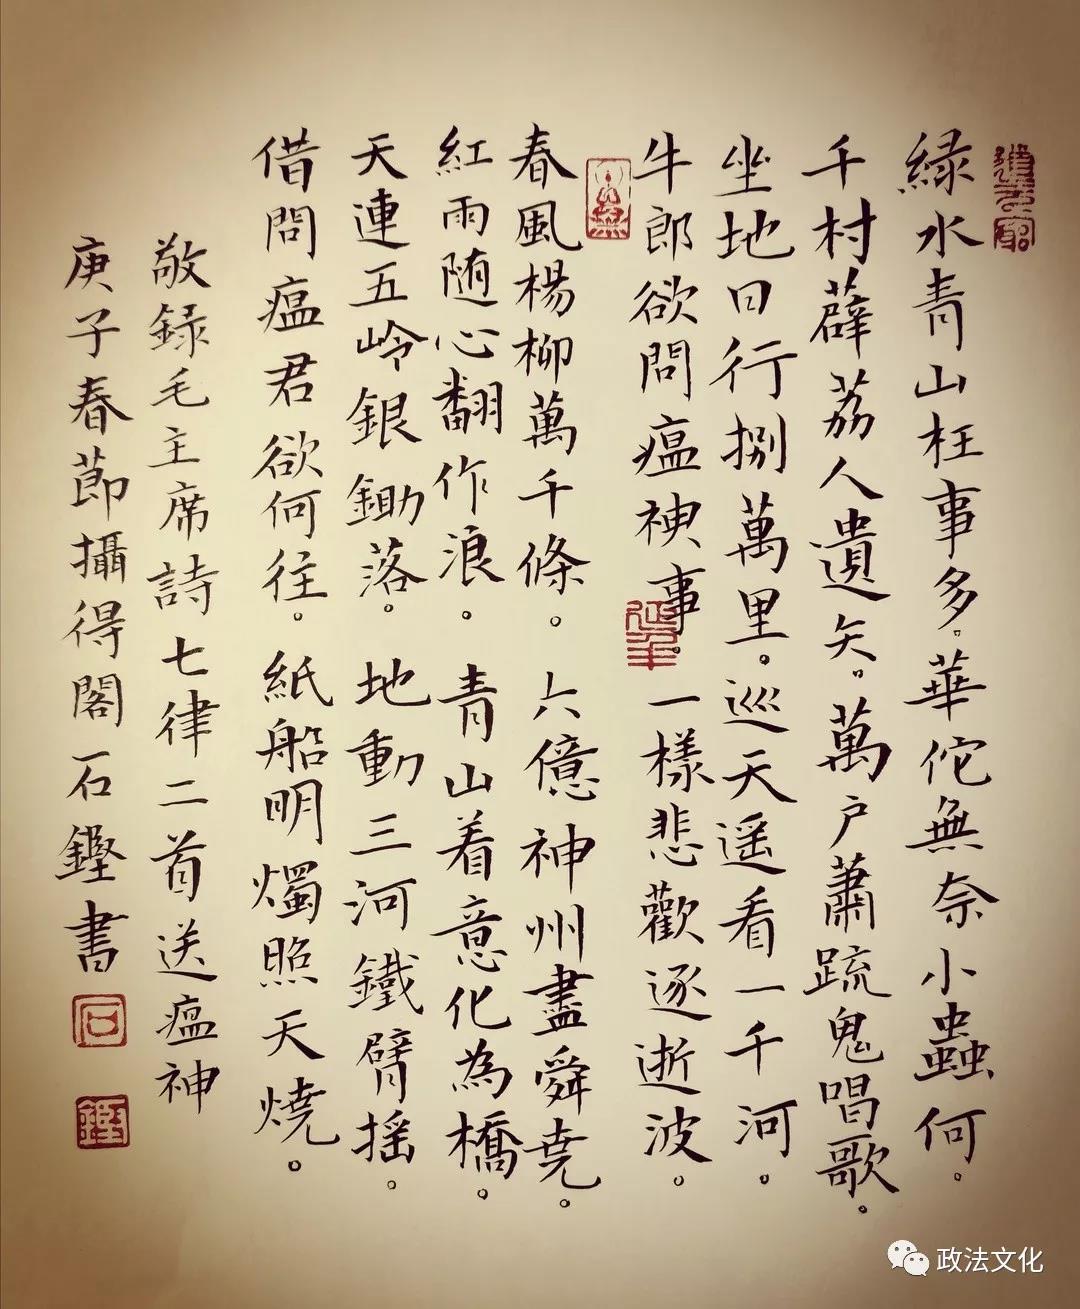 緑水青山枉事多。華佗無奈小蟲何。
千村薜荔人遺矢。萬户蕭疏鬼唱歌。
坐地日行捌萬里。巡天遥看一千河。
牛郎欲問瘟神事。一樣悲歡逐逝波。
春風楊柳萬千條。六億神州盡舜堯。
紅雨随心翻作浪。青山着意化為橋。
天連五岭銀鋤落。地動三河鐵臂摇。
借問瘟君欲何往。紙船明燭照天燒。
敬録毛主席詩七律二首送瘟神
庚子春節攝得閣石鏗書
石
鏗
延年
政法文化